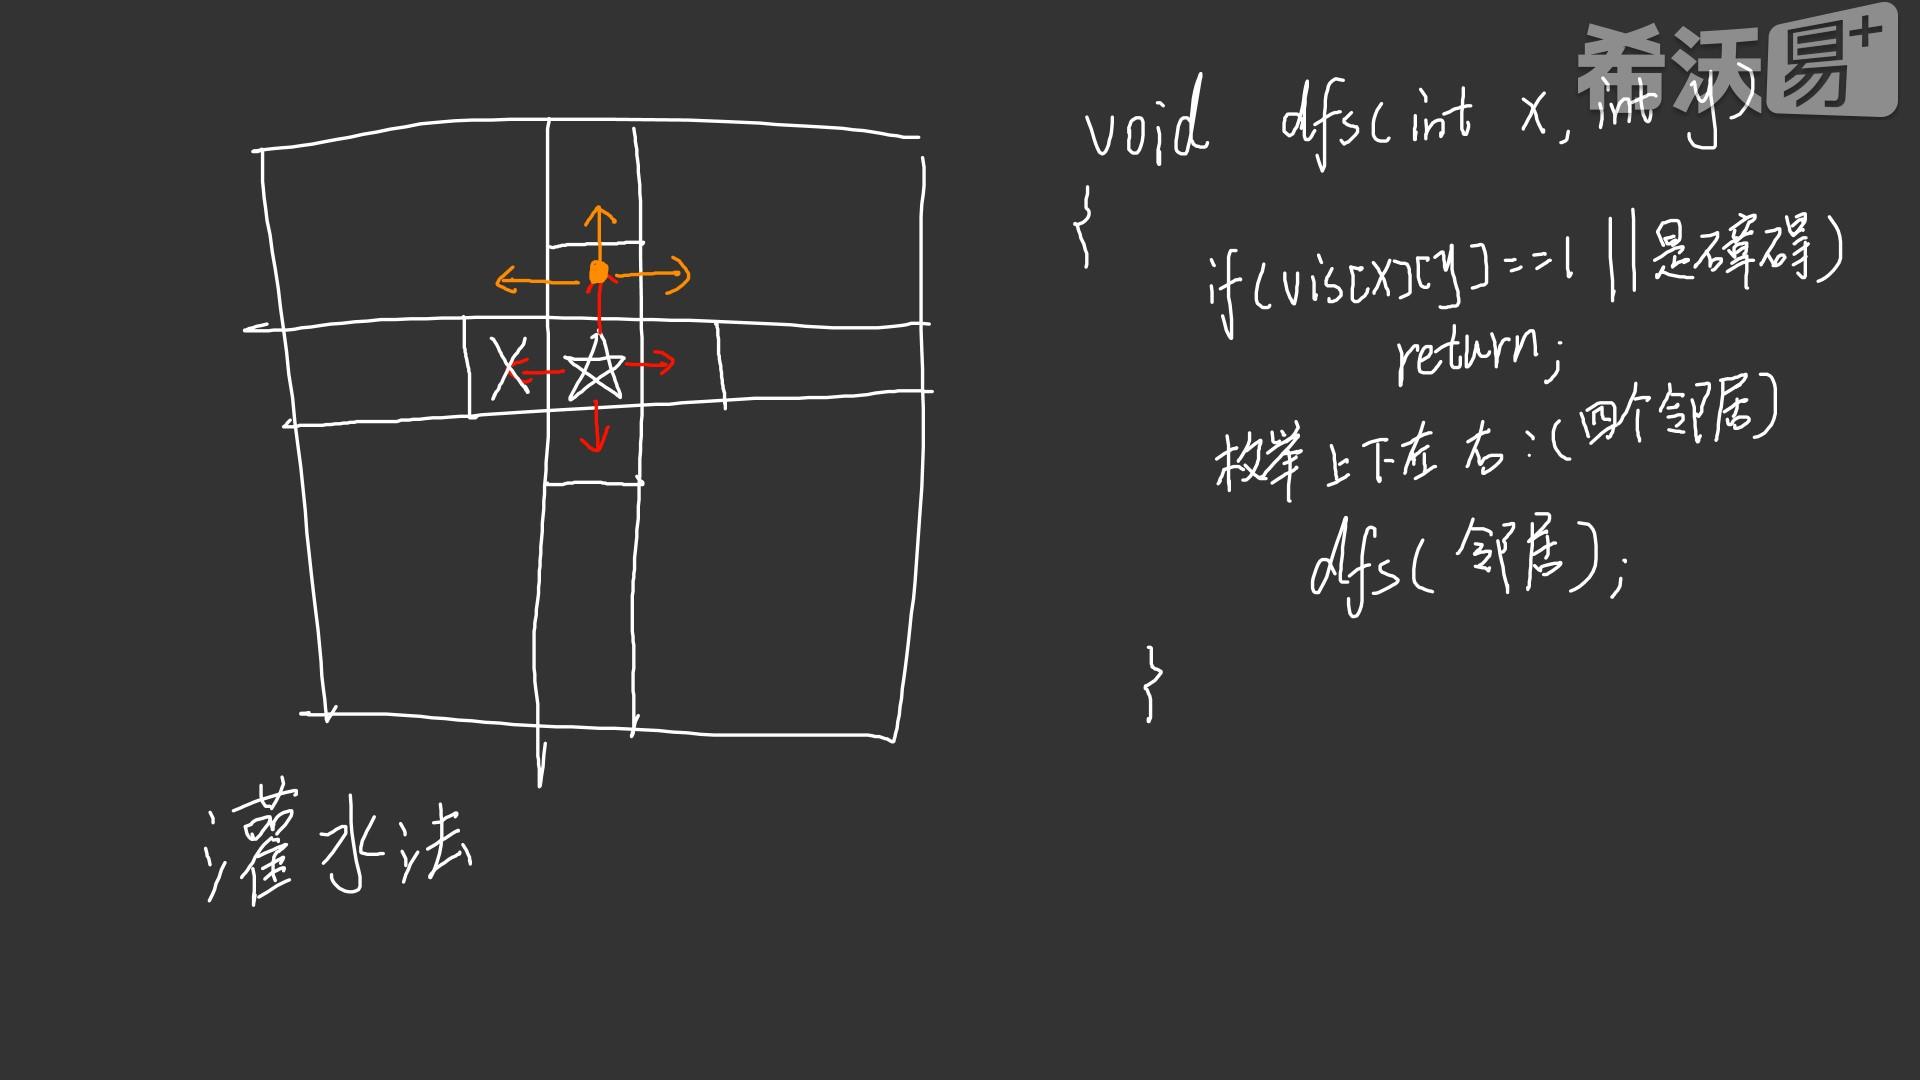 希沃易+
void dfs(int x, int y)
{
if(vis[x][y]==1 ||是障碍)
return;
枚举上下左右:(四个邻居)
dfs(邻居);
}
X
灌水法